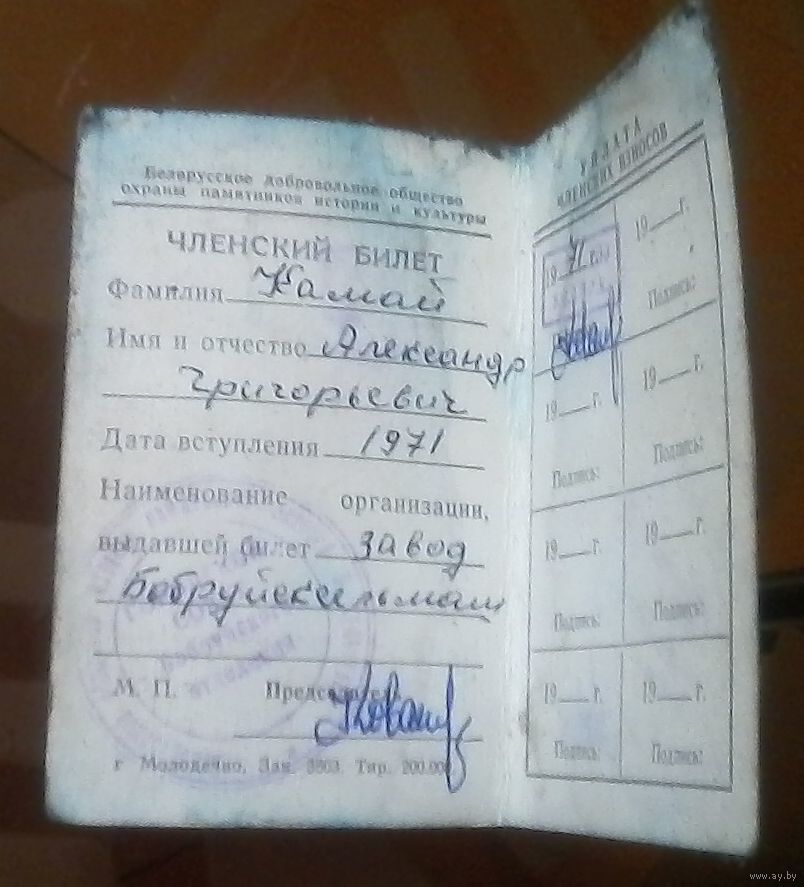 Белорусское добровольное общество
охраны памятников истории и культуры
ЧЛЕНСКИЙ БИЛЕТ
Фамилия Камай
Имя и отчество Александр
Григорьевич
Дата вступления 1971
Наименование организации,
выдавшей билет завод
Бобруйсксельмаш
М. П. Председатель
г Молодечно, Зак. 3803. Тир. 200.000
УПЛАТА
ЧЛЕНСКИХ ВЗНОСОВ
19 71 г. 19 г.
Подпись:
19 г. 19 г.
Подпись: Подпись:
19 г. 19 г.
Подпись: Подпись:
19 г. 19 г.
Подпись: Подпись:
www.ay.by